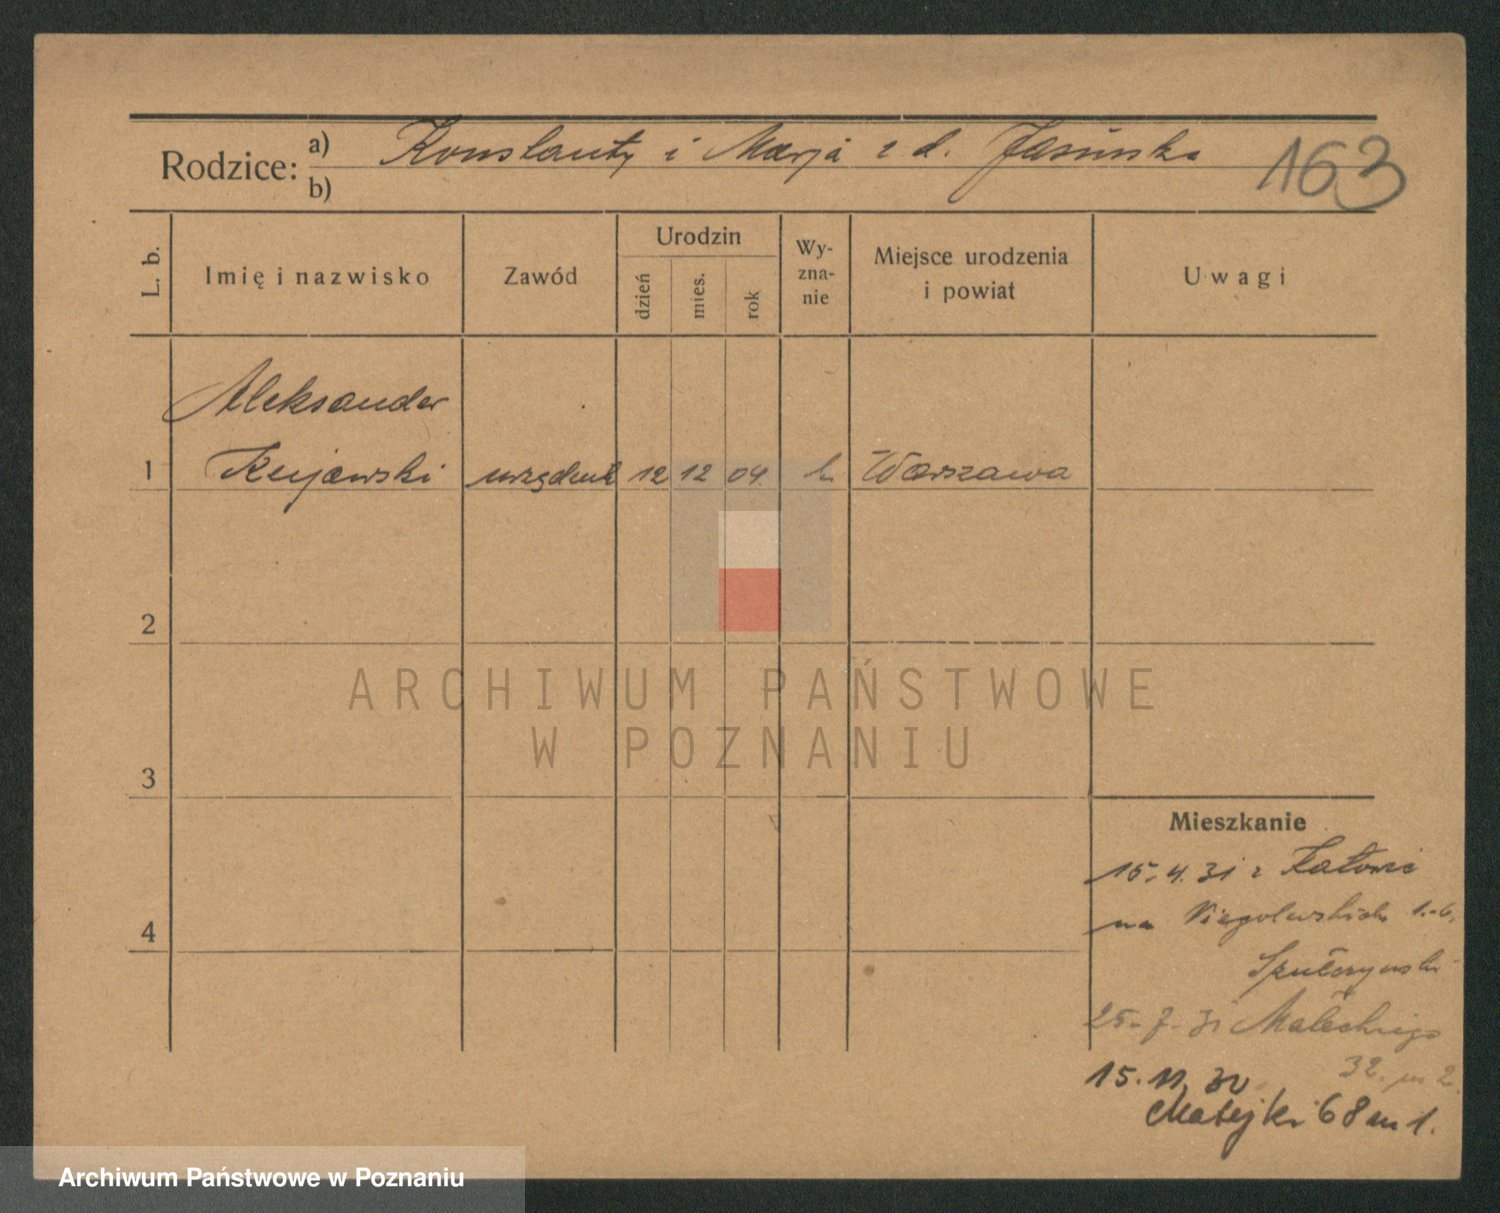 Rodzice: a) Konstanty i Marja z d. Jasińska
b)
163
L. b.
Imię i nazwisko
Zawód
Urodzin
dzień
mies.
rok
Wy-
zna-
nie
Miejsce urodzenia
i powiat
Uwagi
Aleksander
1 Kujawski urzędnik 12 12 04 k Warszawa
2
3
4
Mieszkanie
15.4.31 z
na Niegolewskich
25.7.31 Małeckiego
32. m 2.
15.11.
Matejki 68 m 1.
ARCHIWUM PAŃSTWOWE
W POZNANIU
Archiwum Państwowe w Poznaniu